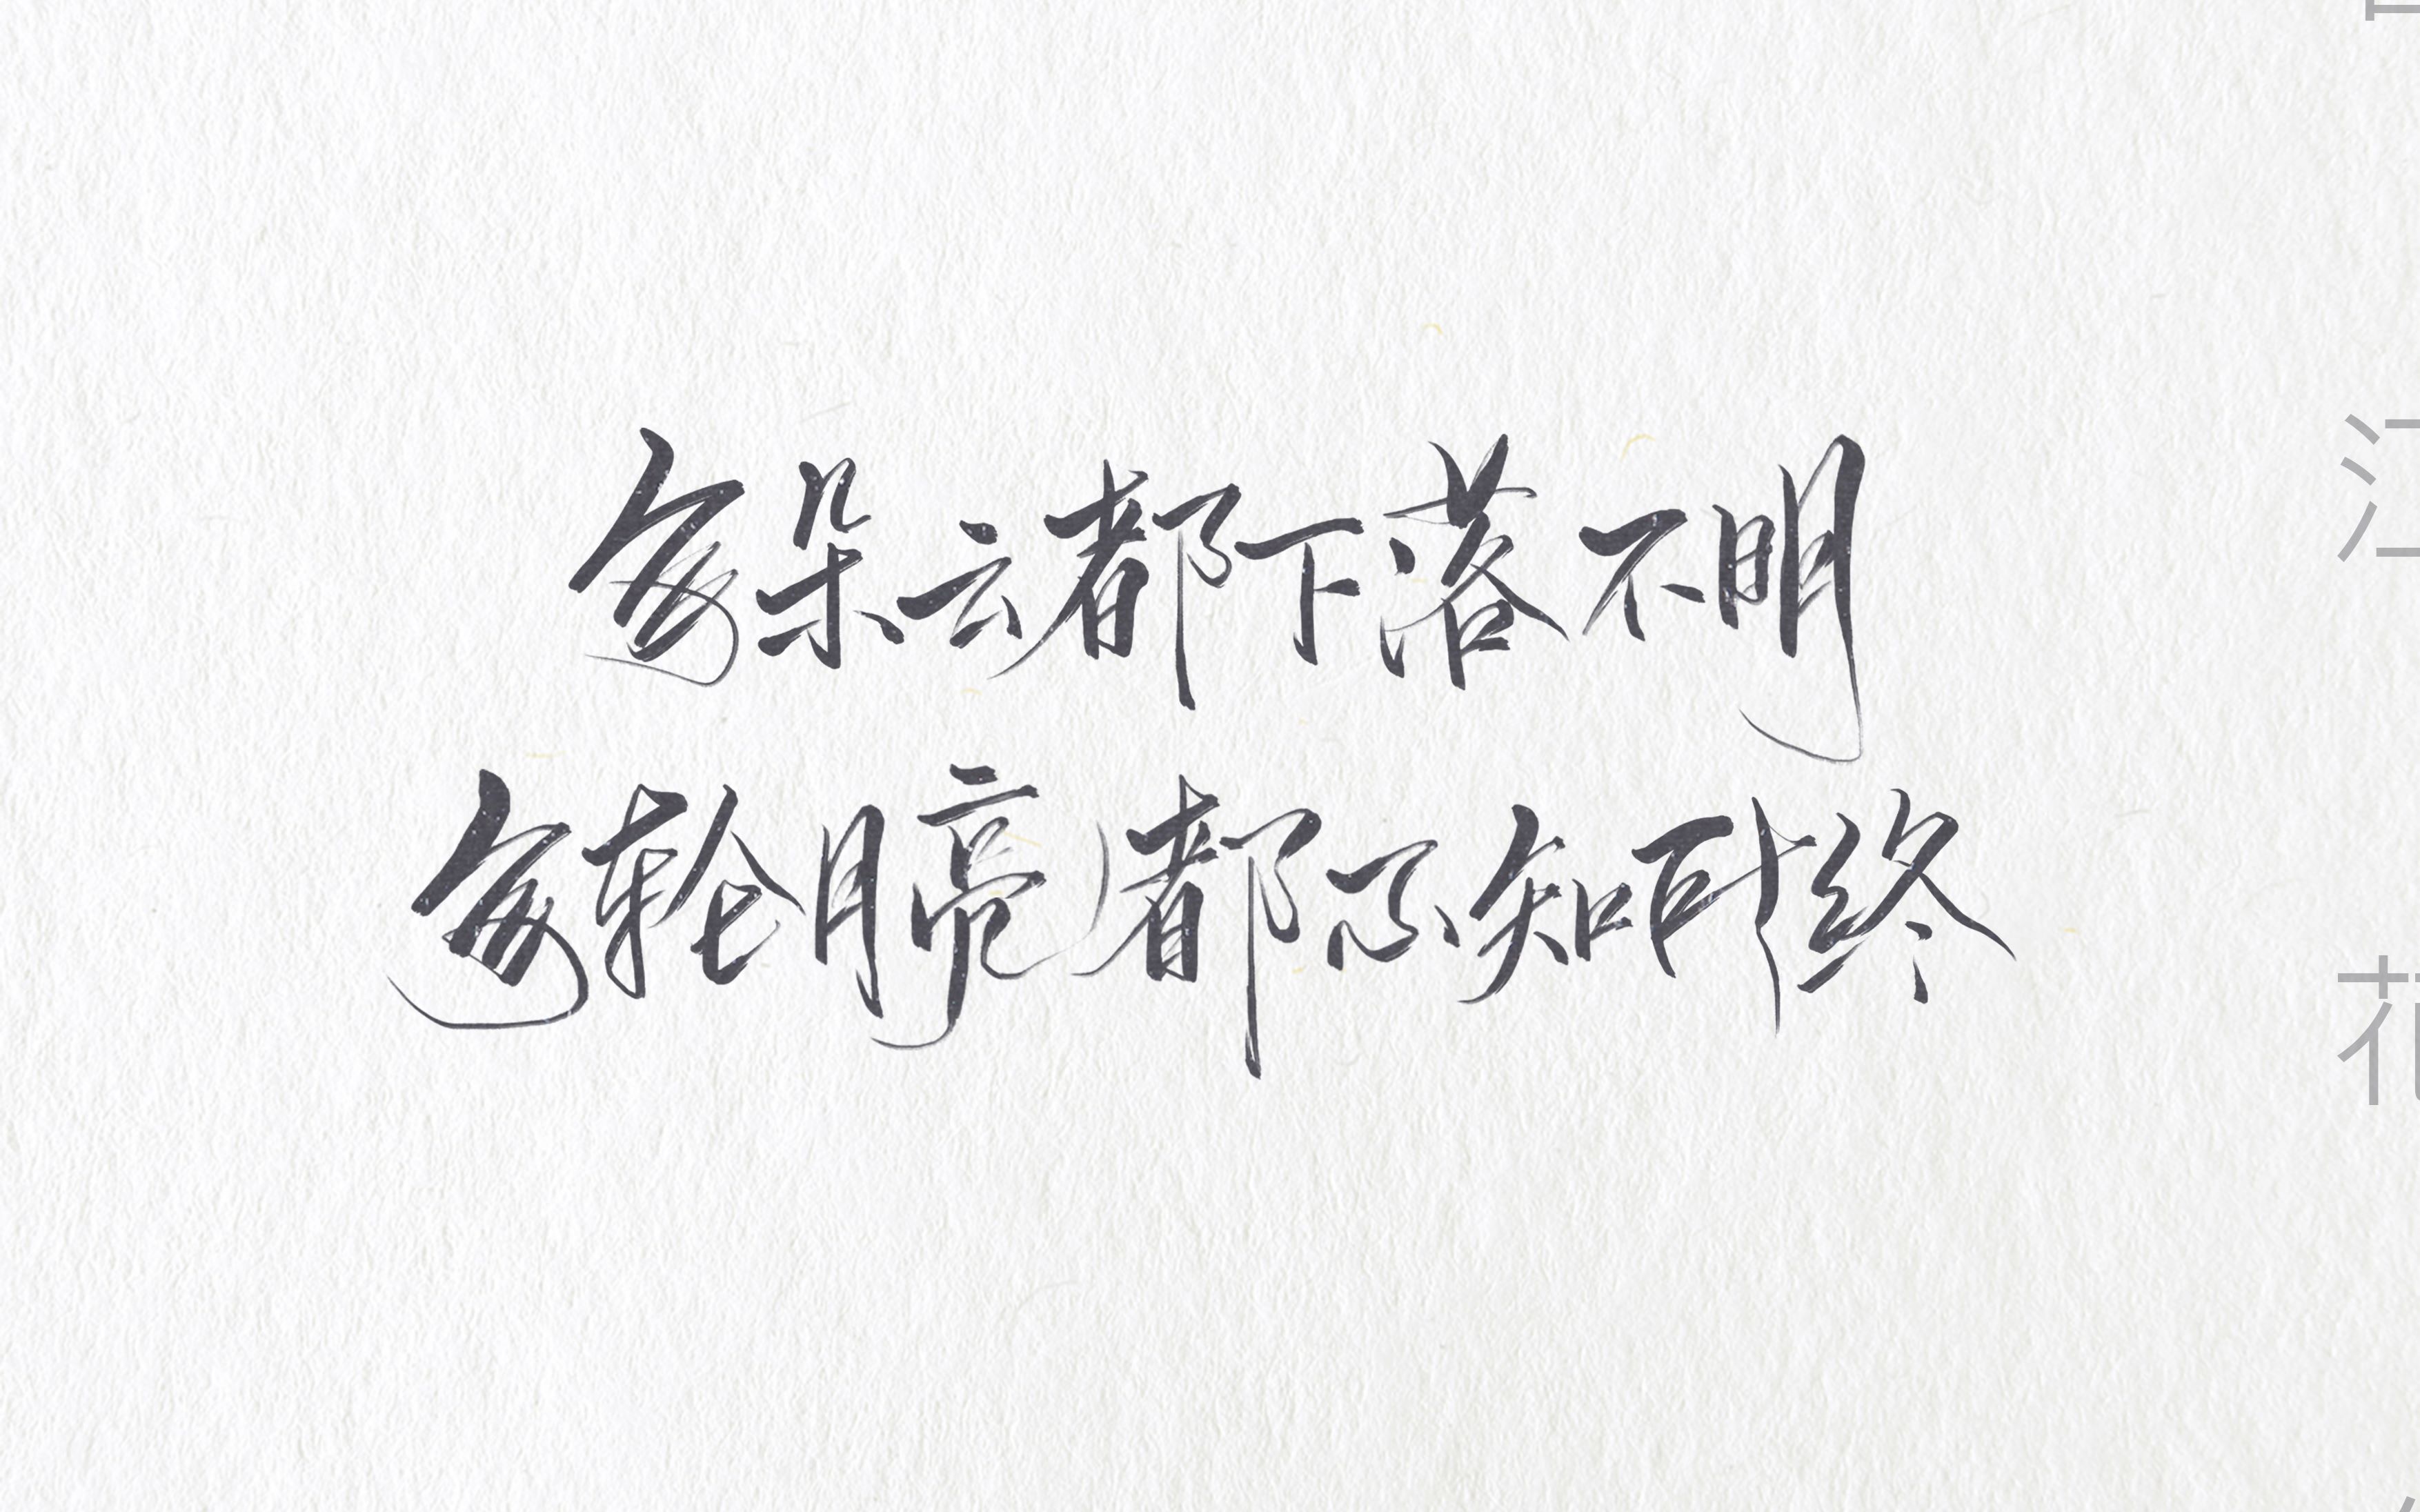 每朵云都下落不明
每轮月亮都不知所终
江
花